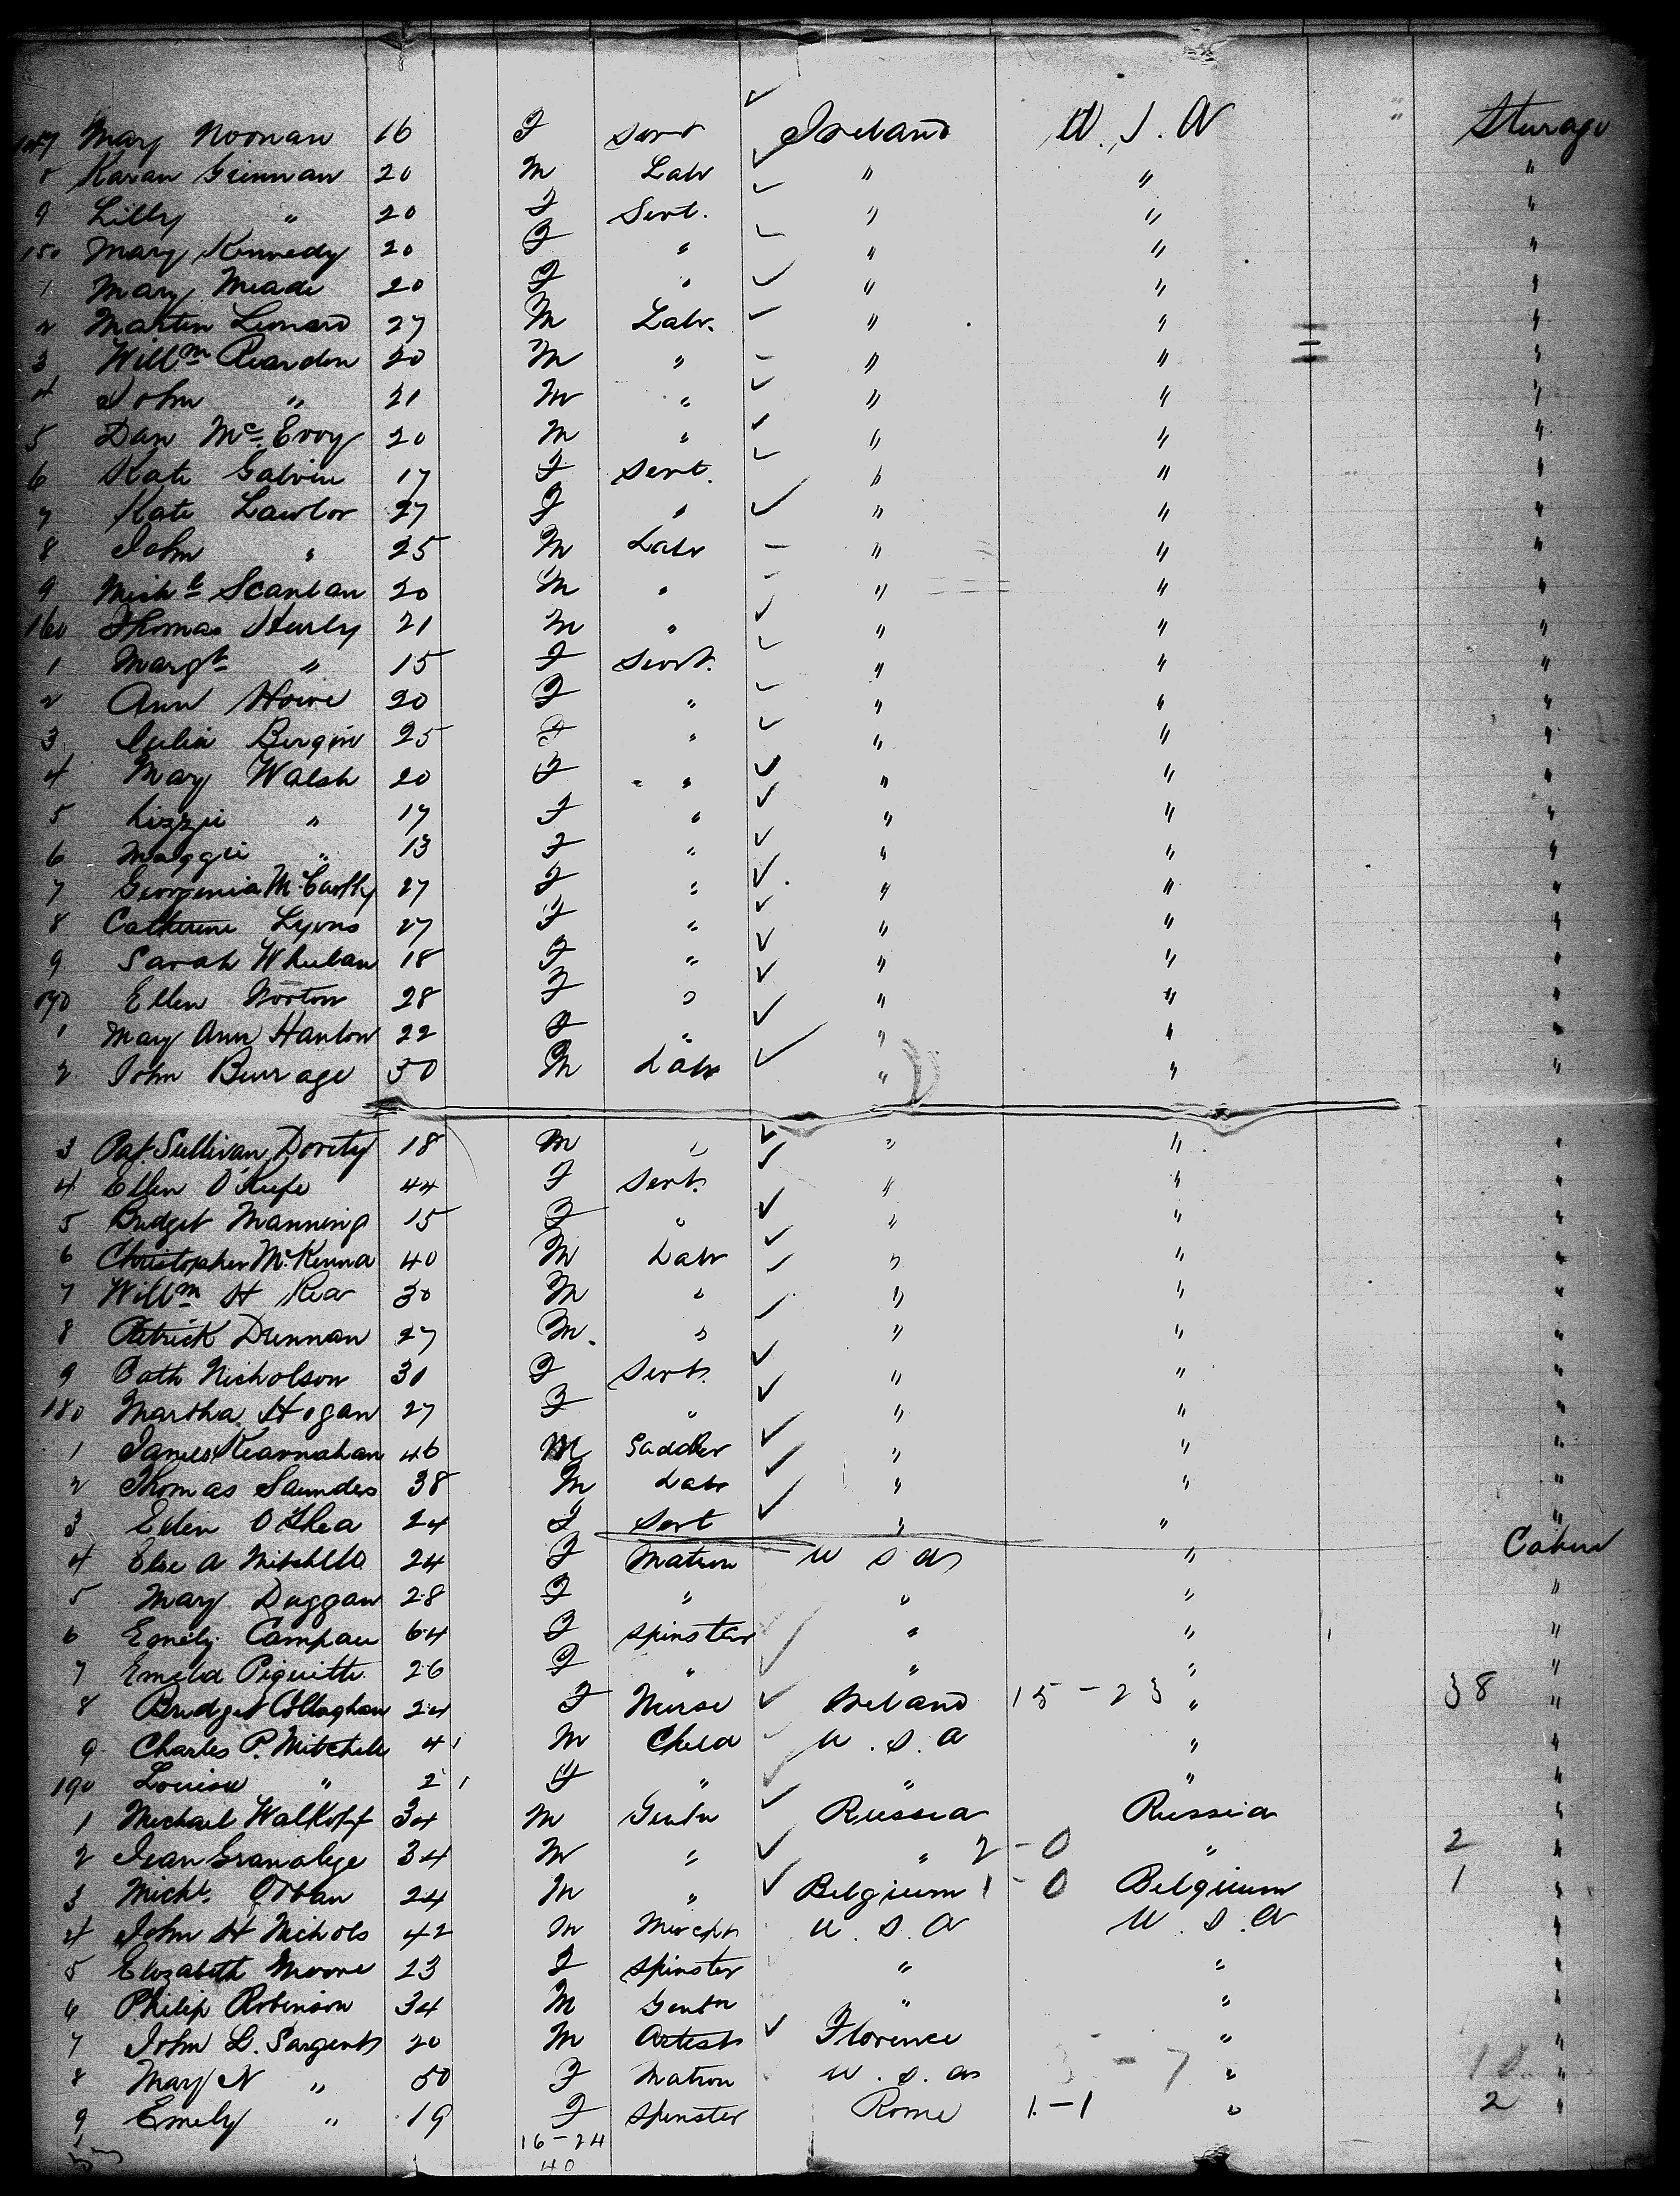 147 Mary Noonan 16 F Servt Ireland U.S.A " Sturage
8 Karan Grinnan 20 M Labr " " "
9 Lilly " 20 F Servt. " " "
150 Mary Kennedy 20 F " " " "
1 Mary Meade 20 F " " " "
2 Martin Lenard 27 M Labr. " " "
3 Willm Reardon 20 M " " " "
4 John " 21 M " " " "
5 Dan Mc. Evoy 20 M " " " "
6 Kate Galvin 17 F Servt. " " "
7 Kate Lawlor 27 F " " " "
8 John " 25 M Labr " " "
9 Michl Scanlan 20 M " " " "
160 Thomas Hurly 21 M " " " "
1 Margt " 15 F Servt. " " "
2 Ann Howe 20 F " " " "
3 Julia Bergin 25 F " " " "
4 Mary Walsh 20 F " " " "
5 Lizzie " 17 F " " " "
6 Maggie " 13 F " " " "
7 Georgenia McCarthy 27 F " " " "
8 Catherine Lyons 27 F " " " "
9 Sarah Whelan 18 F " " " "
170 Ellen Norton 28 F " " " "
1 Mary Ann Hanlon 22 F " " " "
2 John Burrage 30 M Labr " " "
3 Pat. Sullivan Dority 18 M " " " "
4 Ellen O'Keefe 44 F Servt. " " "
5 Bridget Manning 15 F " " " "
6 Christopher McKenna 40 M Labr " " "
7 Willm H Rea 30 M " " " "
8 Patrick Drennan 27 M. " " " "
9 Cath Nicholson 31 F Servt. " " "
180 Martha Hogan 27 F " " " "
1 James Kearnahan 46 M Saddler " " "
2 Thomas Saunders 38 M Labr " " "
3 Ellen O Shea 24 F Servt " " "
4 Else A Mitchell 24 F Matron U S A " Cabin
5 Mary Duggan 28 F " " " "
6 Emely Campau 64 F Spinster " " "
7 Emelia Piquette 26 F " " " "
8 Bridget Collaghan 24 F Nurse Ireland 15-23 " 38 "
9 Charles P. Mitchell 4 M Child U.S.A " "
190 Louisa " 2 F " " " "
1 Michael Walkoff 34 M Gentn Russia Russia "
2 Jean Granolige 34 M " " 2-0 " 2 "
3 Michl. Orban 24 M " Belgium 1-0 Belgium 1 "
4 John H Nichols 42 M Mercht U.S.A U.S.A "
5 Elizabeth Moore 23 F Spinster " " "
6 Philip Robinson 34 M Gentn " " "
7 John S. Sargent 20 M Artist Florence " "
8 Mary N " 50 F Matron U.S.A 3-7 " 10 "
9 Emely " 19 F Spinster Rome 1-1 " 2 "
16-24
40